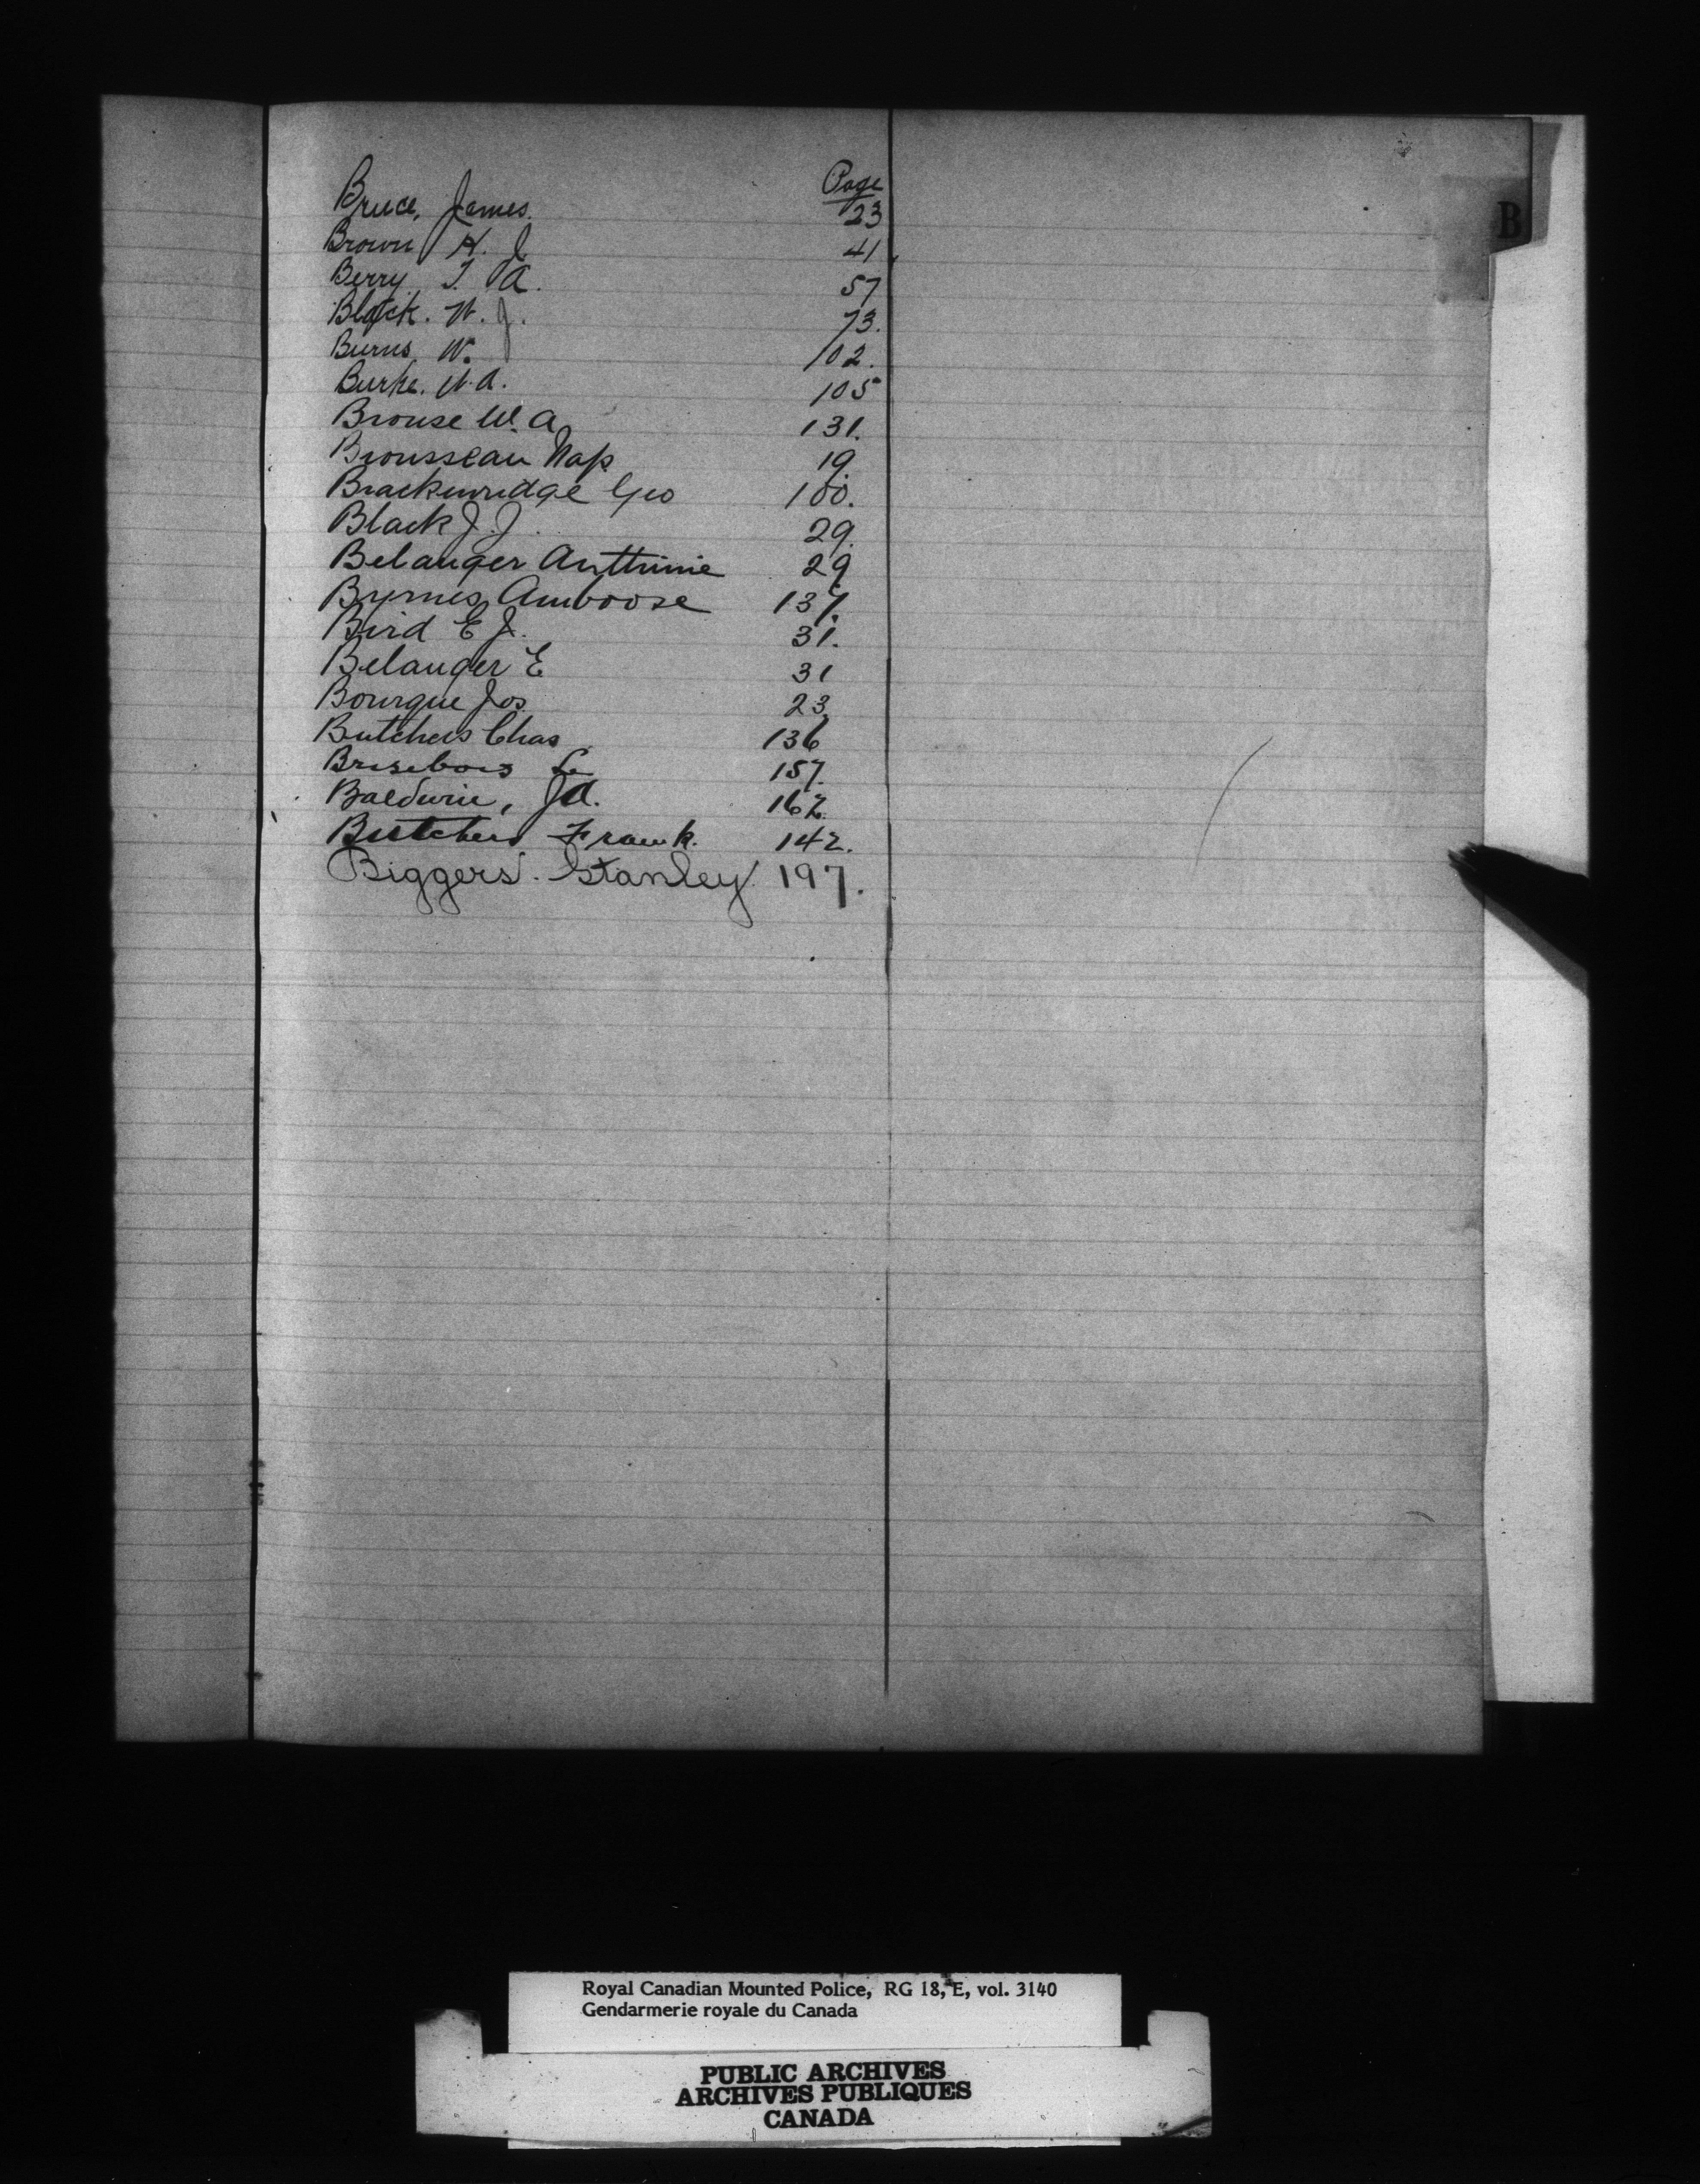 Page
Bruce, James. 23
Brown H. J. 41
Berry, T. A. 57
Black. W. J. 73.
Burns, W. 102.
Burke, W. A. 105
Brouse W. A. 131.
Brousseau Nap. 19.
Brackenridge Geo 100.
Black J. J. 29.
Belanger Anthime 29
Byrnes Ambrose 137.
Bird E J. 31.
Belanger E 31
Bourque Jos. 23.
Butchers Chas 136
Brisebois L. 157.
Baldwin, J A. 162.
Butchers Frank. 142.
Biggers. Stanley 197.
B
Royal Canadian Mounted Police, RG 18, E, vol. 3140
Gendarmerie royale du Canada
PUBLIC ARCHIVES
ARCHIVES PUBLIQUES
CANADA